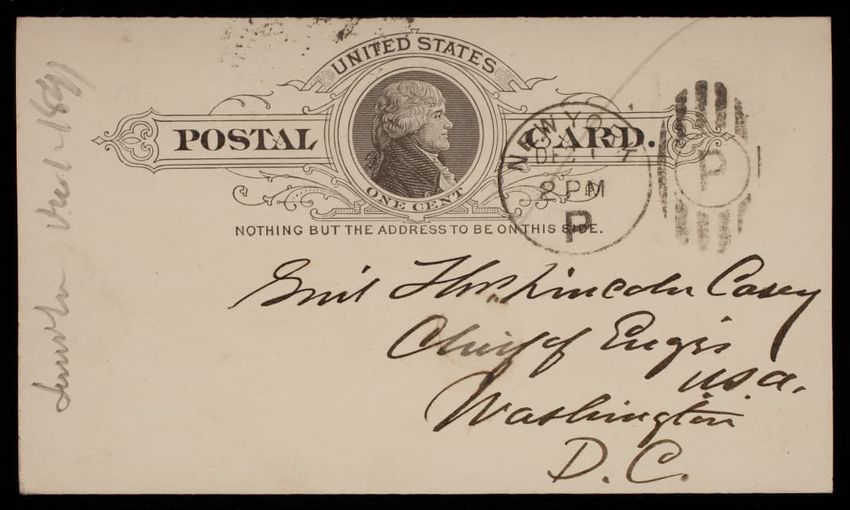 UNITED STATES
POSTAL CARD.
ONE CENT
NOTHING BUT THE ADDRESS TO BE ON THIS SIDE.
NEW YORK
DEC 1
2 PM
P
P
Genl Thos. Lincoln Casey
Chief of Engrs
U.S.A.
Washington
D.C.
Dec 1 - 1891